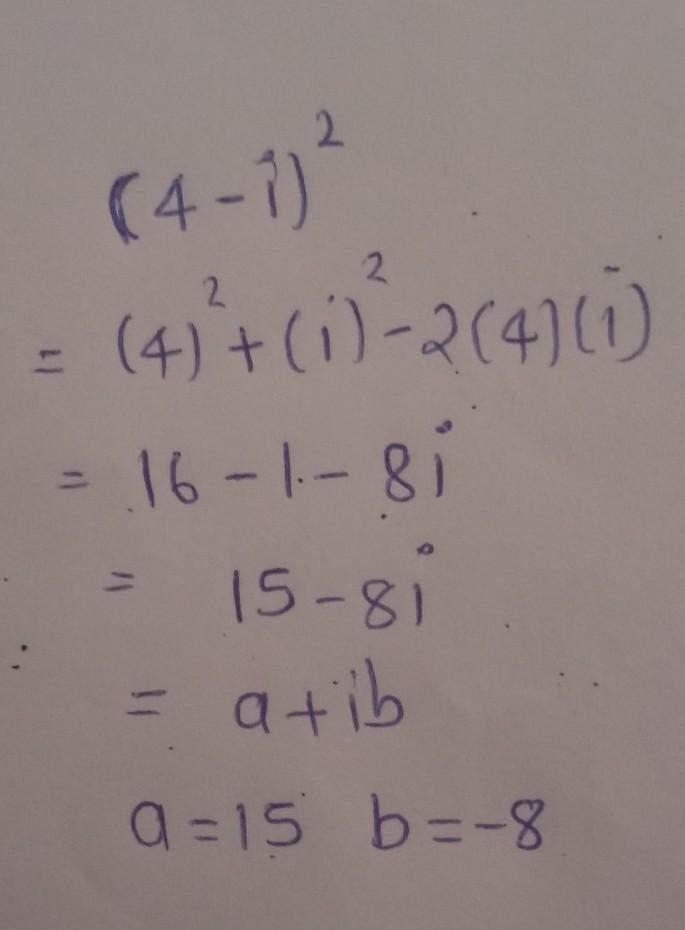 (4-i)²
= (4)²+(i)²-2(4)(i)
= 16-1-8i
= 15-8i
= a+ib
a=15 b=-8